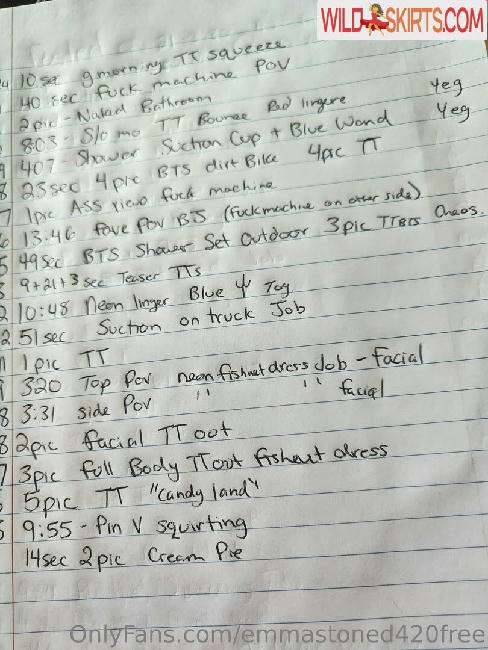 WILD SKIRTS.COM
10 sec gmorning TT squeeze
40 sec fuck machine POV
2 pic - Naked Bathroom
8:03 - Slo mo TT Bounce Red lingere yeg
407 - Shower Suction Cup + Blue Wand yeg
25sec 4pic BTS dirt Bike 4pic TT
1pic Ass view fuck machine
13:46 fave POV BJ (fuckmachine on other side)
49sec BTS Shower Set Outdoor 3pic TTBTS Chaos.
9+21+3 sec Teaser TTs
10:48 Neon linger Blue Toy
51sec Suction on truck Job
1 pic TT
320 Top Pov neon fishnet dress Job - facial
3:31 side Pov " " facial
2pic facial TT out
3pic full Body TT out fishnet dress
5pic TT "Candy land"
9:55 - Pin V squirting
14sec 2pic Cream Pie
OnlyFans.com/emmastoned420free